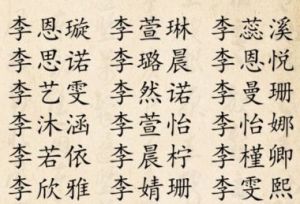 李恩璇 李萱琳 李蕊溪
李思诺 李璐晨 李恩悦
李艺雯 李然诺 李曼珊
李沐涵 李萱怡 李怡娜
李若依 李晨柠 李槿卿
李欣雅 李婧珊 李雯熙